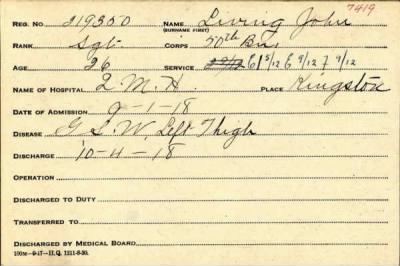 7419
REG. NO. 219350 NAME Living John
(SURNAME FIRST)
RANK Sgt. CORPS 50th Bn.
AGE 26 SERVICE C 1 5/12 E 9/12 F 9/12
NAME OF HOSPITAL 2 M. H PLACE Kingston
DATE OF ADMISSION 9-1-18
DISEASE G S. W. Left Thigh
DISCHARGE 10-4-18
OPERATION
DISCHARGED TO DUTY
TRANSFERRED TO
DISCHARGED BY MEDICAL BOARD
100M-9-17-H.Q. 1211-8-30.